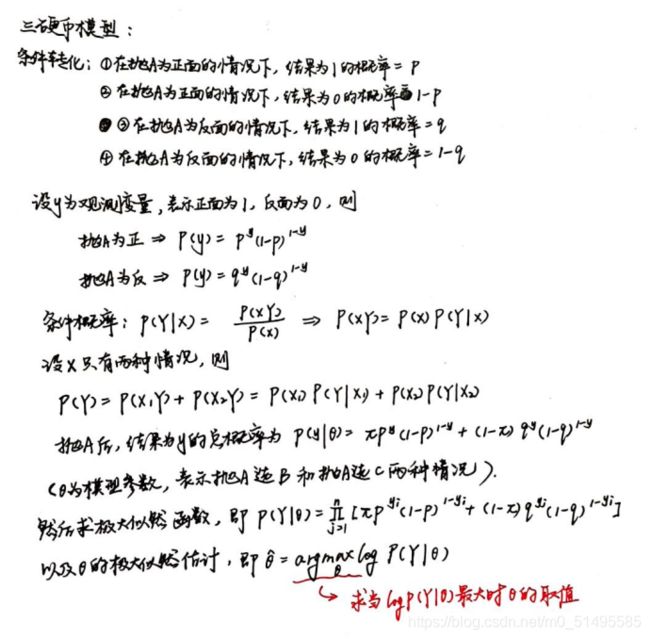 三硬币模型:
条件转化: ①在抛A为正面的情况下, 结果为1的概率 = p
②在抛A为正面的情况下, 结果为0的概率 = 1-p
③在抛A为反面的情况下, 结果为1的概率 = q
④在抛A为反面的情况下, 结果为0的概率 = 1-q
设y为观测变量, 表示正面为1, 反面为0, 则
抛A为正 ⇒ P(y) = p^y(1-p)^{1-y}
抛A为反 ⇒ P(y) = q^y(1-q)^{1-y}
条件概率: P(Y|X) = P(XY)/P(X) ⇒ P(XY) = P(X)P(Y|X)
设X只有两种情况, 则
P(Y) = P(X₁Y) + P(X₂Y) = P(X₁)P(Y|X₁) + P(X₂)P(Y|X₂)
抛A后, 结果为y的总概率为 P(y|θ) = πp^y(1-p)^{1-y} + (1-π)q^y(1-q)^{1-y}
(θ为模型参数, 表示抛A选B和抛A选C两种情况).
然后求极大似然函数, 即 P(Y|θ) = ∏_{j=1}^{n} [πp^{yj}(1-p)^{1-yj} + (1-π)q^{yj}(1-q)^{1-yj}]
以及θ的极大似然估计, 即 θ̂ = argmax_θ log P(Y|θ)
↳ 求当 log P(Y|θ) 最大时θ的取值
https://blog.csdn.net/m0_51495585